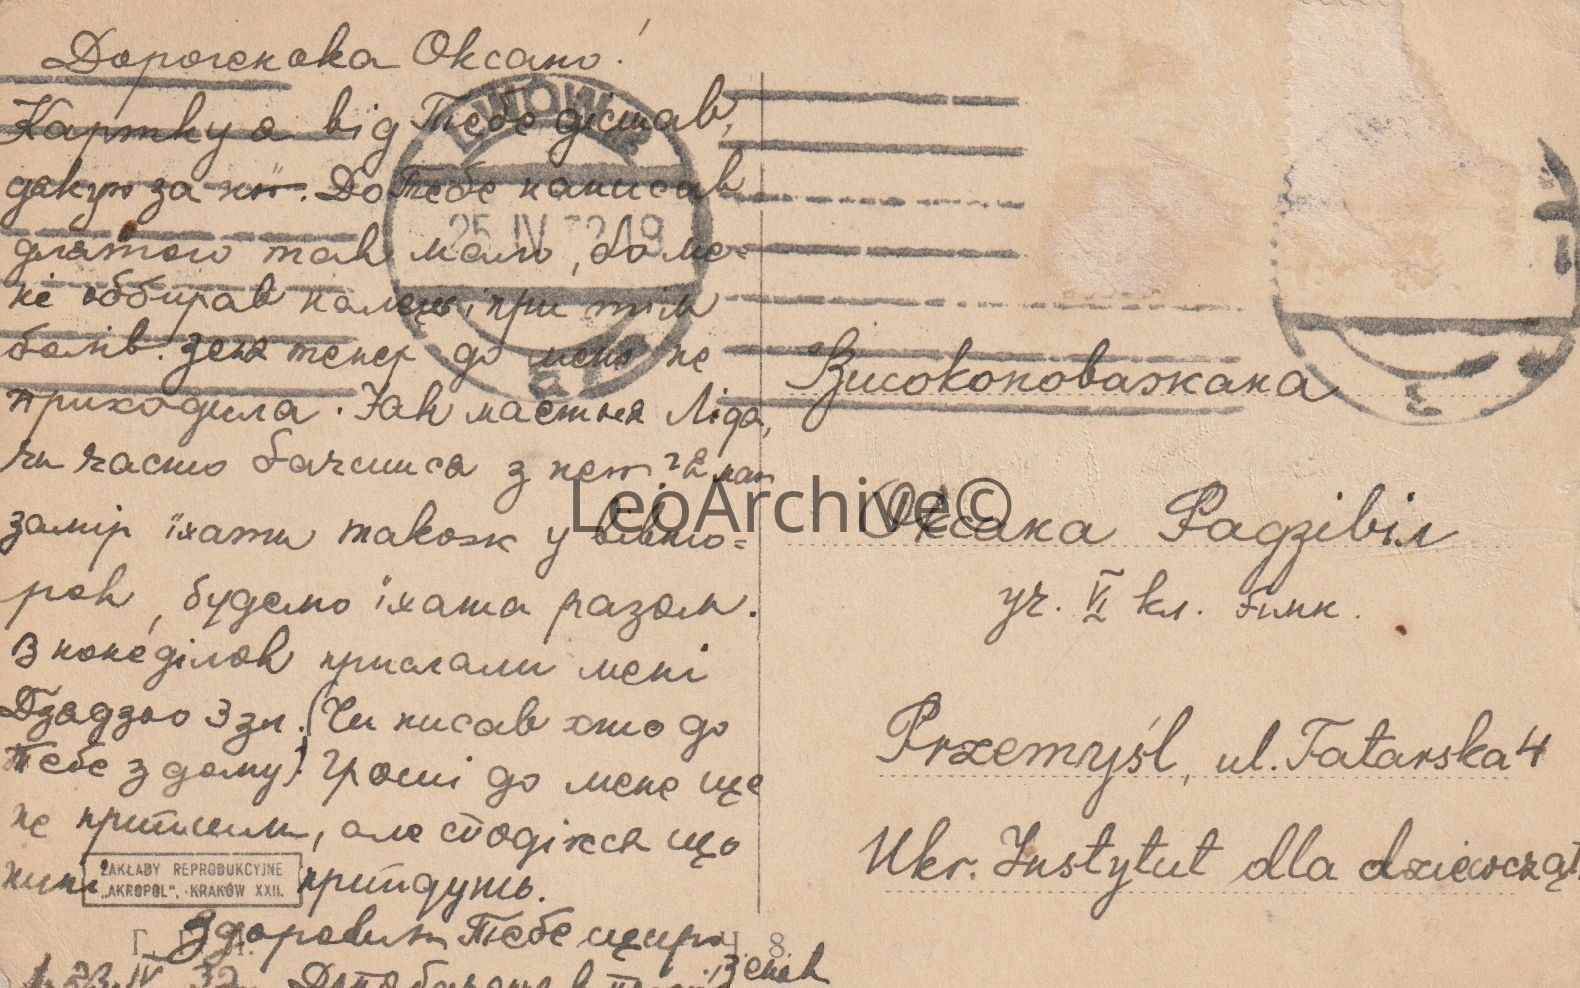 Дорогенька Оксано!
Картку я від Тебе дістав,
дякую за ню. До Тебе написав
для того так мало, бо ме-
не оббирав палець і при тім
болів. Зеня тепер до мене не
приходила. Як мається Ліда,
чи часто бачишся з нею? Я маю
замір їхати також у вівто=
рок, будемо їхати разом.
В понеділок прислали мені
Дзядзьо 3 зл. (Чи писав хто до
Тебе з дому). Гроші до мене ще
не прийшли, але сподіюся що
нині прийдуть.
Здоровлю Тебе щиро
Зенек
23.IV 32. До побачення в
ZAKŁADY REPRODUKCYJNE
„AKROPOL". KRAKÓW XXII.
25 IV 32 19
LeoArchive©
Високоповажана
Оксана Радзівіл
уч. VI кл. гімн.
Przemyśl, ul. Tatarska 4
Ukr. Instytut dla dziewcząt